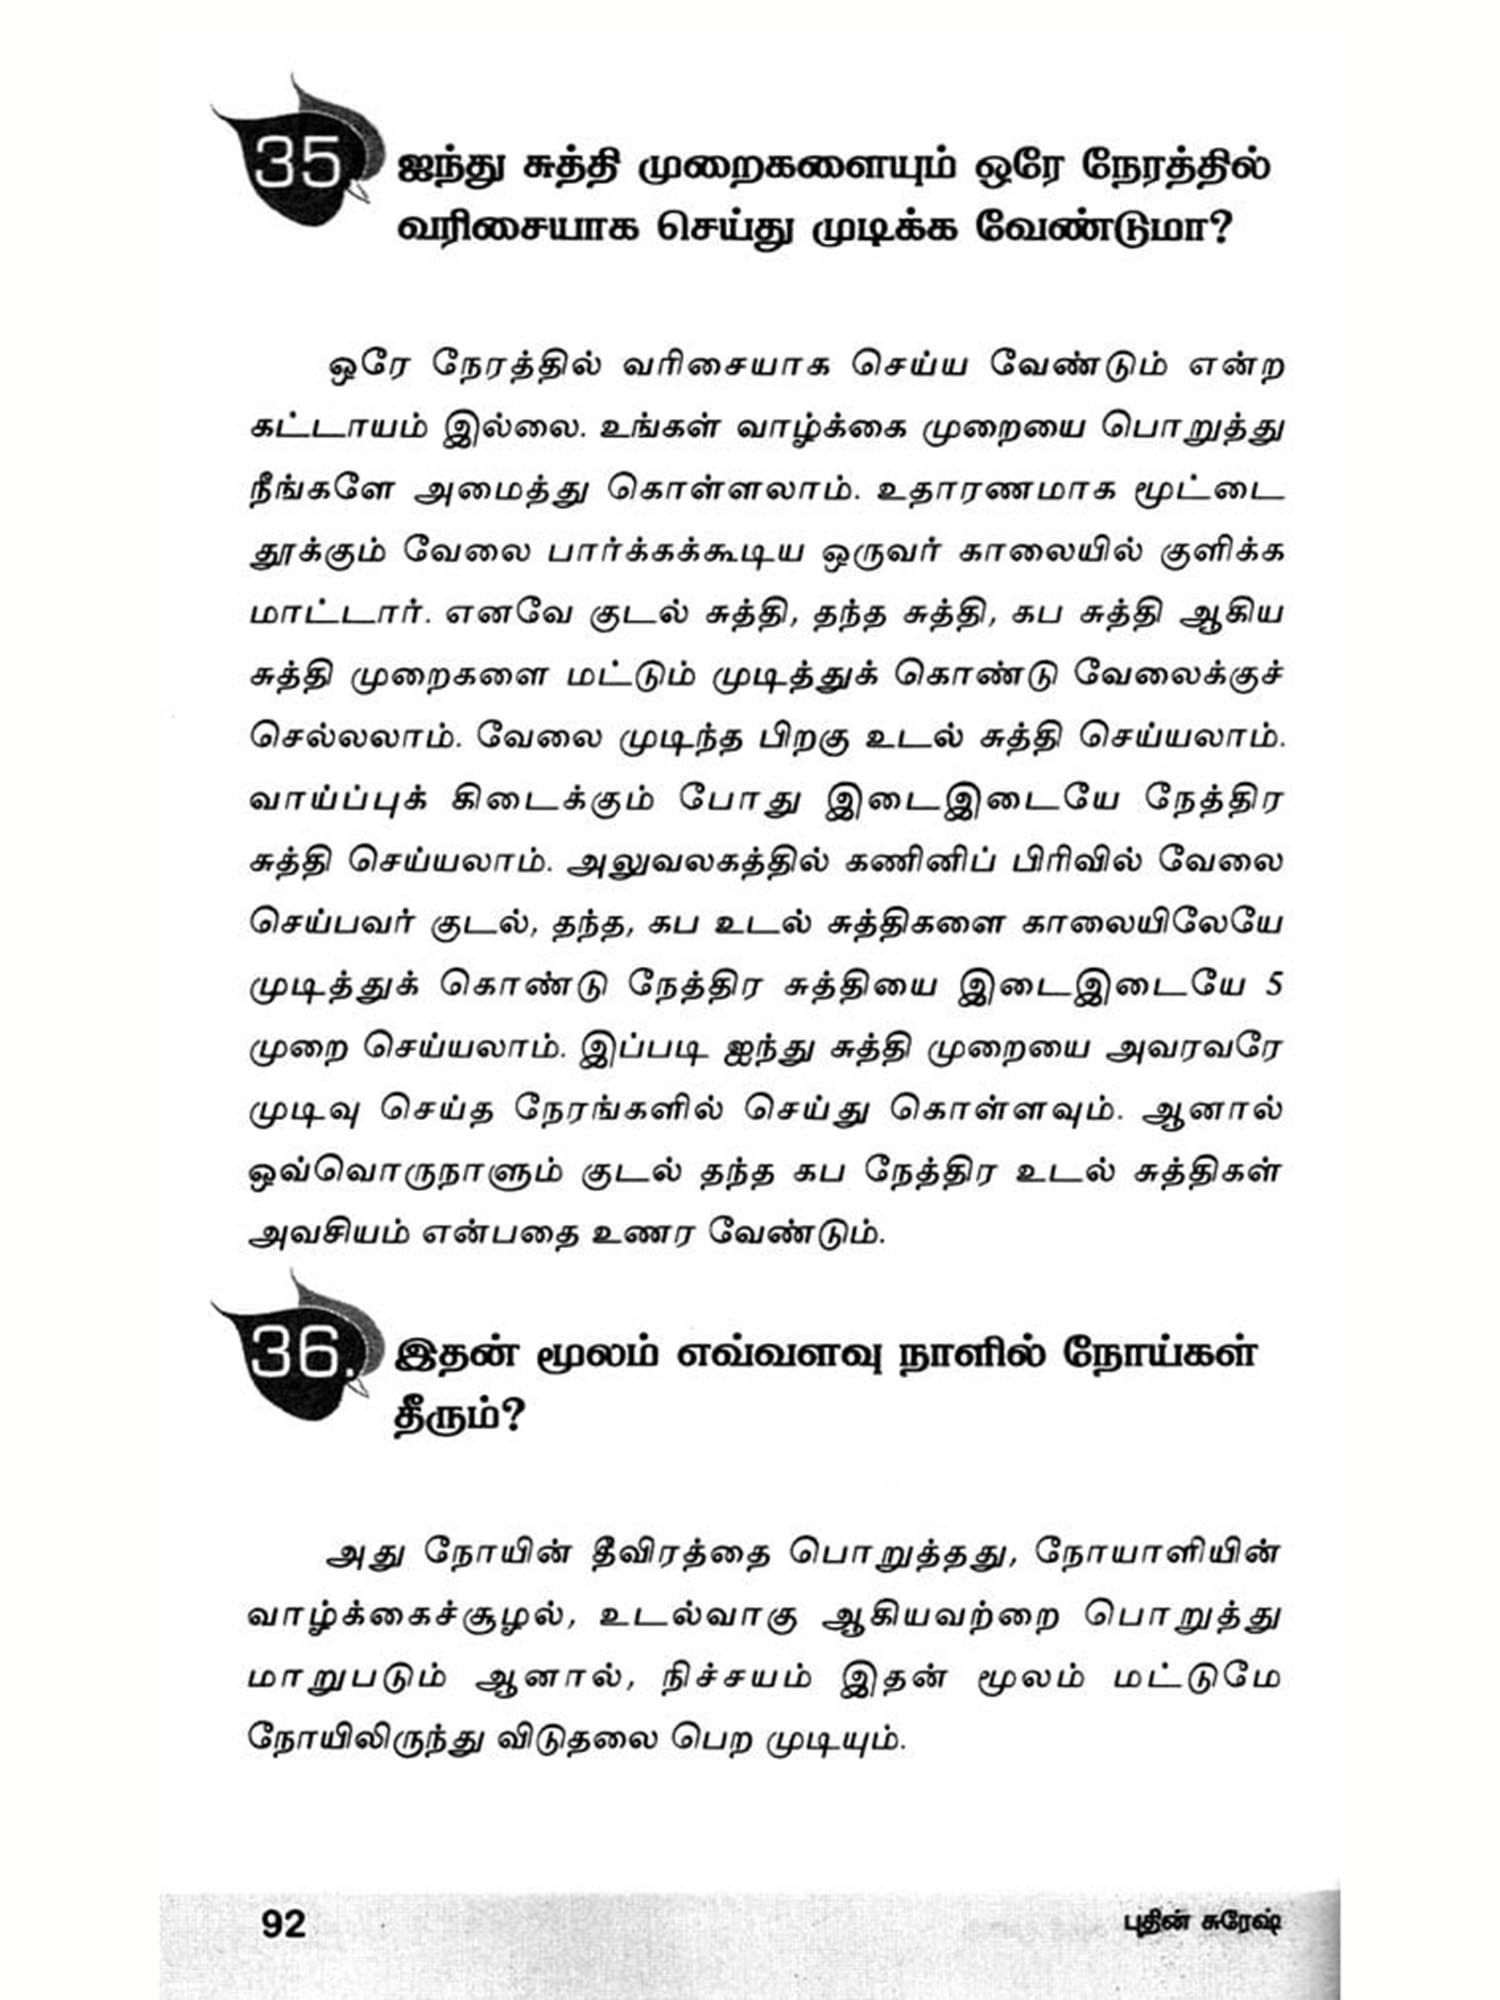 35 ஐந்து சுத்தி முறைகளையும் ஒரே நேரத்தில்
வரிசையாக செய்து முடிக்க வேண்டுமா?
ஒரே நேரத்தில் வரிசையாக செய்ய வேண்டும் என்ற
கட்டாயம் இல்லை. உங்கள் வாழ்க்கை முறையை பொறுத்து
நீங்களே அமைத்து கொள்ளலாம். உதாரணமாக மூட்டை
தூக்கும் வேலை பார்க்கக்கூடிய ஒருவர் காலையில் குளிக்க
மாட்டார். எனவே குடல் சுத்தி, தந்த சுத்தி, கப சுத்தி ஆகிய
சுத்தி முறைகளை மட்டும் முடித்துக் கொண்டு வேலைக்குச்
செல்லலாம். வேலை முடிந்த பிறகு உடல் சுத்தி செய்யலாம்.
வாய்ப்புக் கிடைக்கும் போது இடைஇடையே நேத்திர
சுத்தி செய்யலாம். அலுவலகத்தில் கணினிப் பிரிவில் வேலை
செய்பவர் குடல், தந்த, கப உடல் சுத்திகளை காலையிலேயே
முடித்துக் கொண்டு நேத்திர சுத்தியை இடைஇடையே 5
முறை செய்யலாம். இப்படி ஐந்து சுத்தி முறையை அவரவரே
முடிவு செய்த நேரங்களில் செய்து கொள்ளவும். ஆனால்
ஒவ்வொருநாளும் குடல் தந்த கப நேத்திர உடல் சுத்திகள்
அவசியம் என்பதை உணர வேண்டும்.
36. இதன் மூலம் எவ்வளவு நாளில் நோய்கள்
தீரும்?
அது நோயின் தீவிரத்தை பொறுத்தது, நோயாளியின்
வாழ்க்கைச்சூழல், உடல்வாகு ஆகியவற்றை பொறுத்து
மாறுபடும் ஆனால், நிச்சயம் இதன் மூலம் மட்டுமே
நோயிலிருந்து விடுதலை பெற முடியும்.
92 புதின் சுரேஷ்